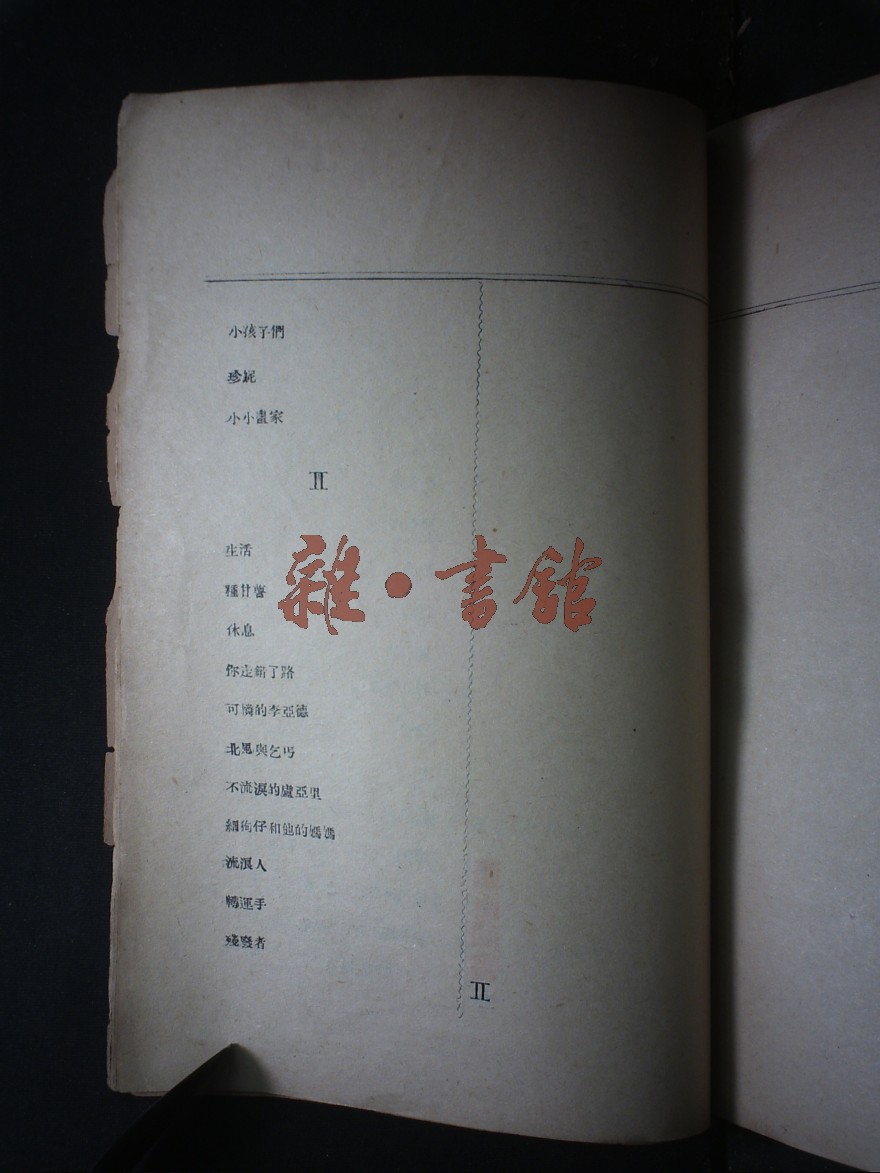 小孩子們
珍妮
小小畫家
II
生活
種甘薯
休息
你走錯了路
可憐的李亞德
北風與乞丐
不流淚的盧亞里
細狗仔和他的媽媽
流浪人
轉運手
殘廢者
II
雜·書館